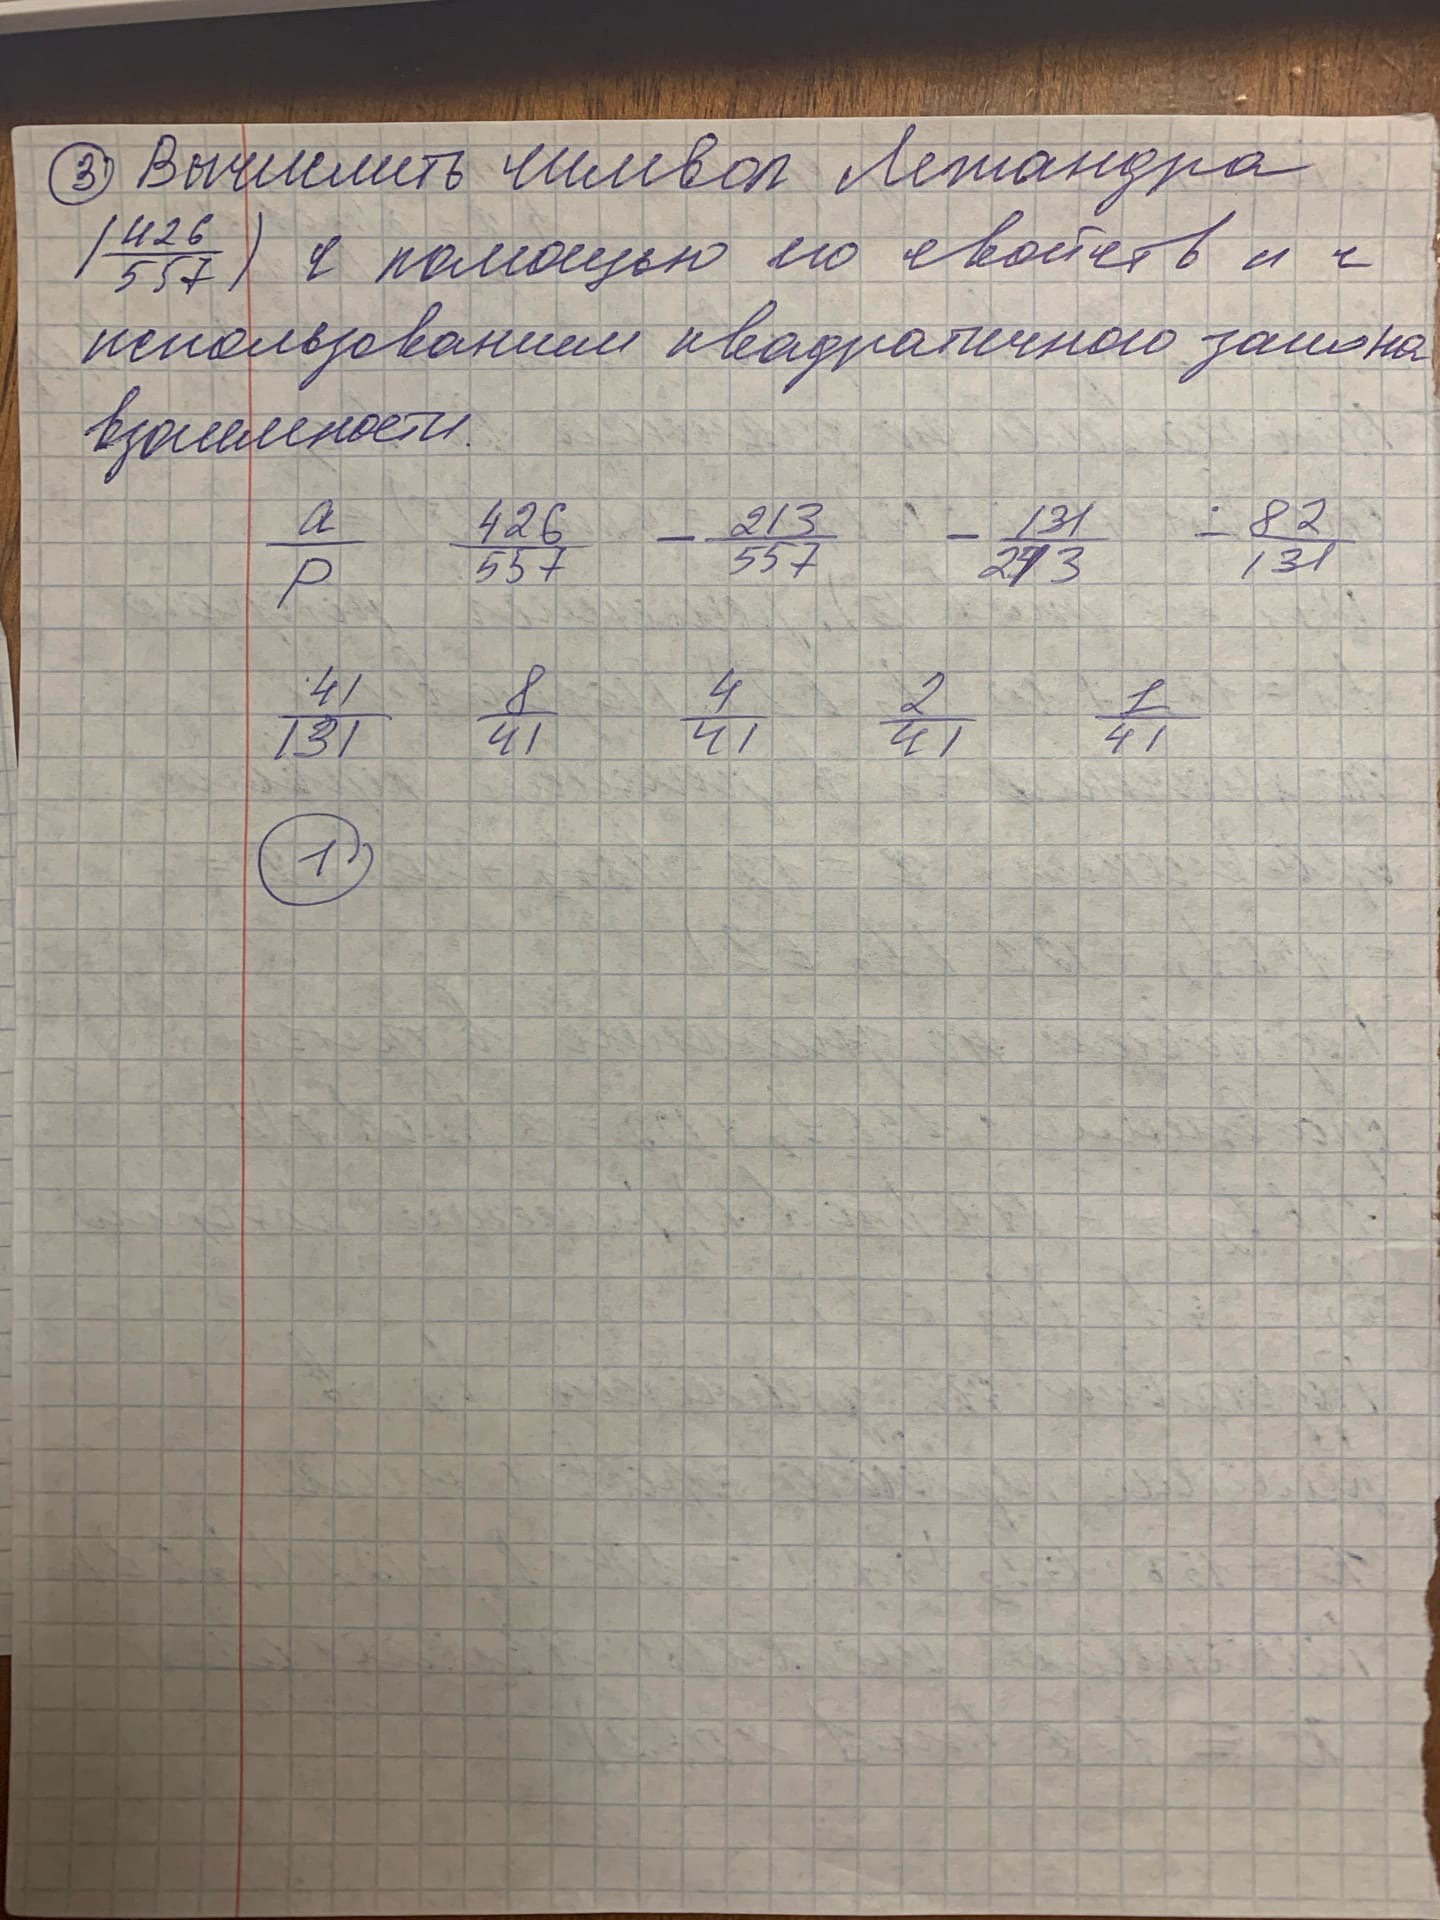 3) Вычислить символ Лежандра
(426/557) с помощью его свойств и с
использованием квадратичного закона
взаимности.
a/p 426/557 - 213/557 - 131/213 - 82/131
41/131 8/41 4/41 2/41 1/41
1